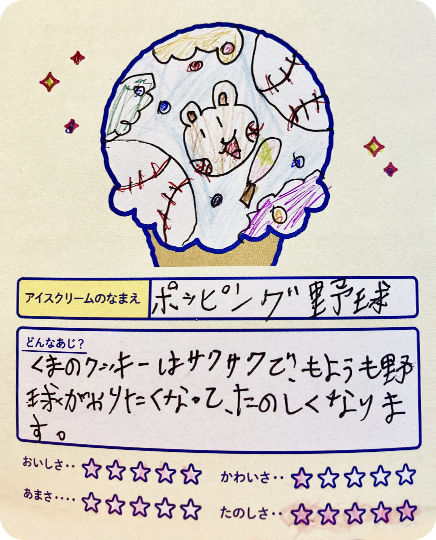 アイスクリームのなまえ ポッピング野球
どんなあじ?
くまのクッキーはサクサクで、もようも野
球がやりたくなって、たのしくなりま
す。
おいしさ‥ ☆☆☆☆☆ かわいさ‥ ☆☆☆☆☆
あまさ‥‥ ☆☆☆☆☆ たのしさ‥ ☆☆☆☆☆